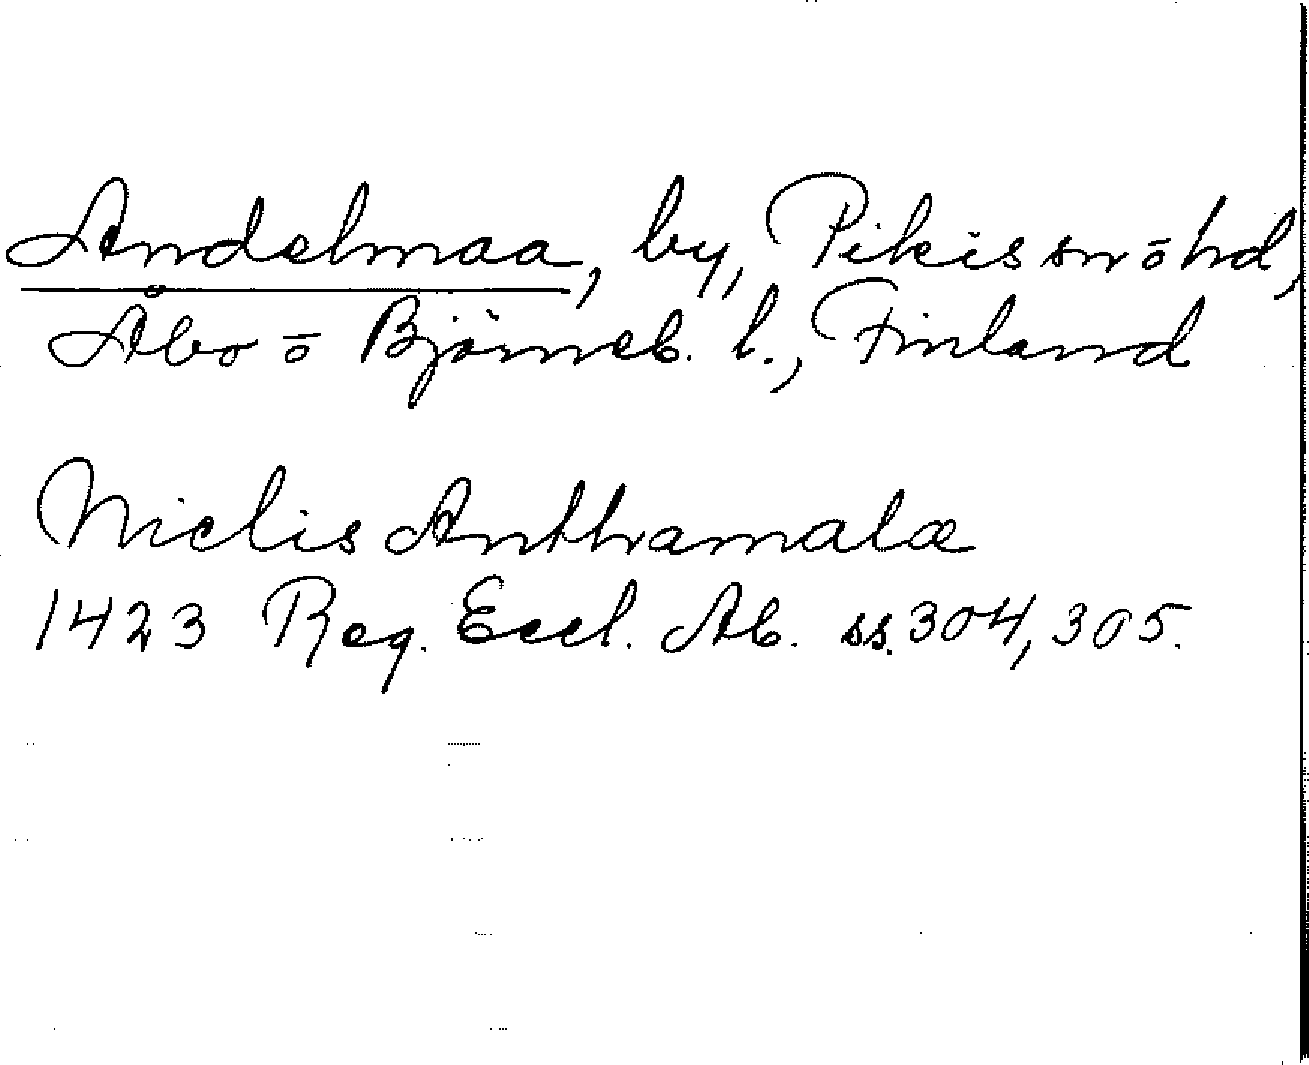 Andelmaa, by, Pikis sn o hd,
Åbo o Björneb. l., Finland
Niclis Anthamala
1423 Reg. Eccl. Ab. ss. 304, 305.